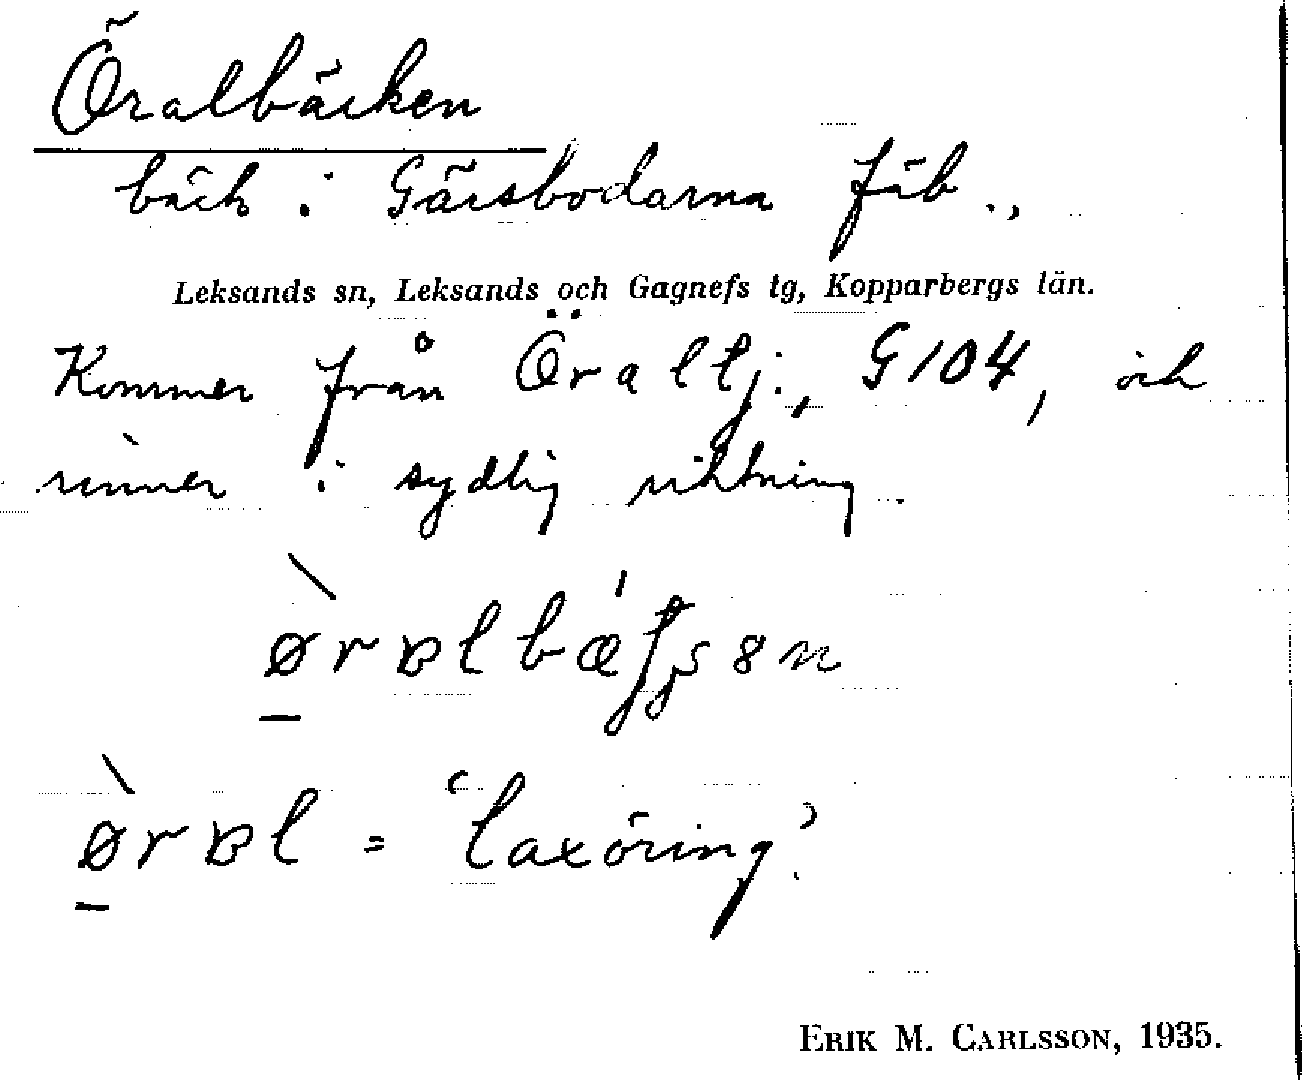 Öralbäcken
bäck i Gärsbodarna fäb.,
Leksands sn, Leksands och Gagnefs tg, Kopparbergs län.
Kommer från Öraltj., G104, och
rinner i sydlig riktning.
ørɐl = 'laxöring'.
ERIK M. CARLSSON, 1935.